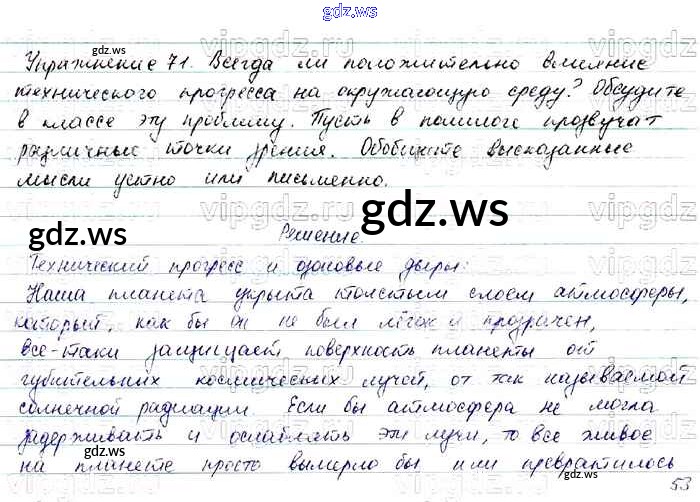 gdz.ws
Упражнение 71. Всегда ли положительно влияние
технического прогресса на окружающую среду? Обсудите
в классе эту проблему. Пусть в полилоге прозвучат
различные точки зрения. Обобщите высказанные
мысли устно или письменно.
gdz.ws
Решение.
Технический прогресс и озоновые дыры:
Наша планета укрыта толстым слоем атмосферы,
который, как бы он не был лёгок и прозрачен,
всё-таки защищает поверхность планеты от
губительных космических лучей, от так называемой
солнечной радиации. Если бы атмосфера не могла
задерживать и ослаблять эти лучи, то все живое
на планете просто вымерло бы или превратилось
53